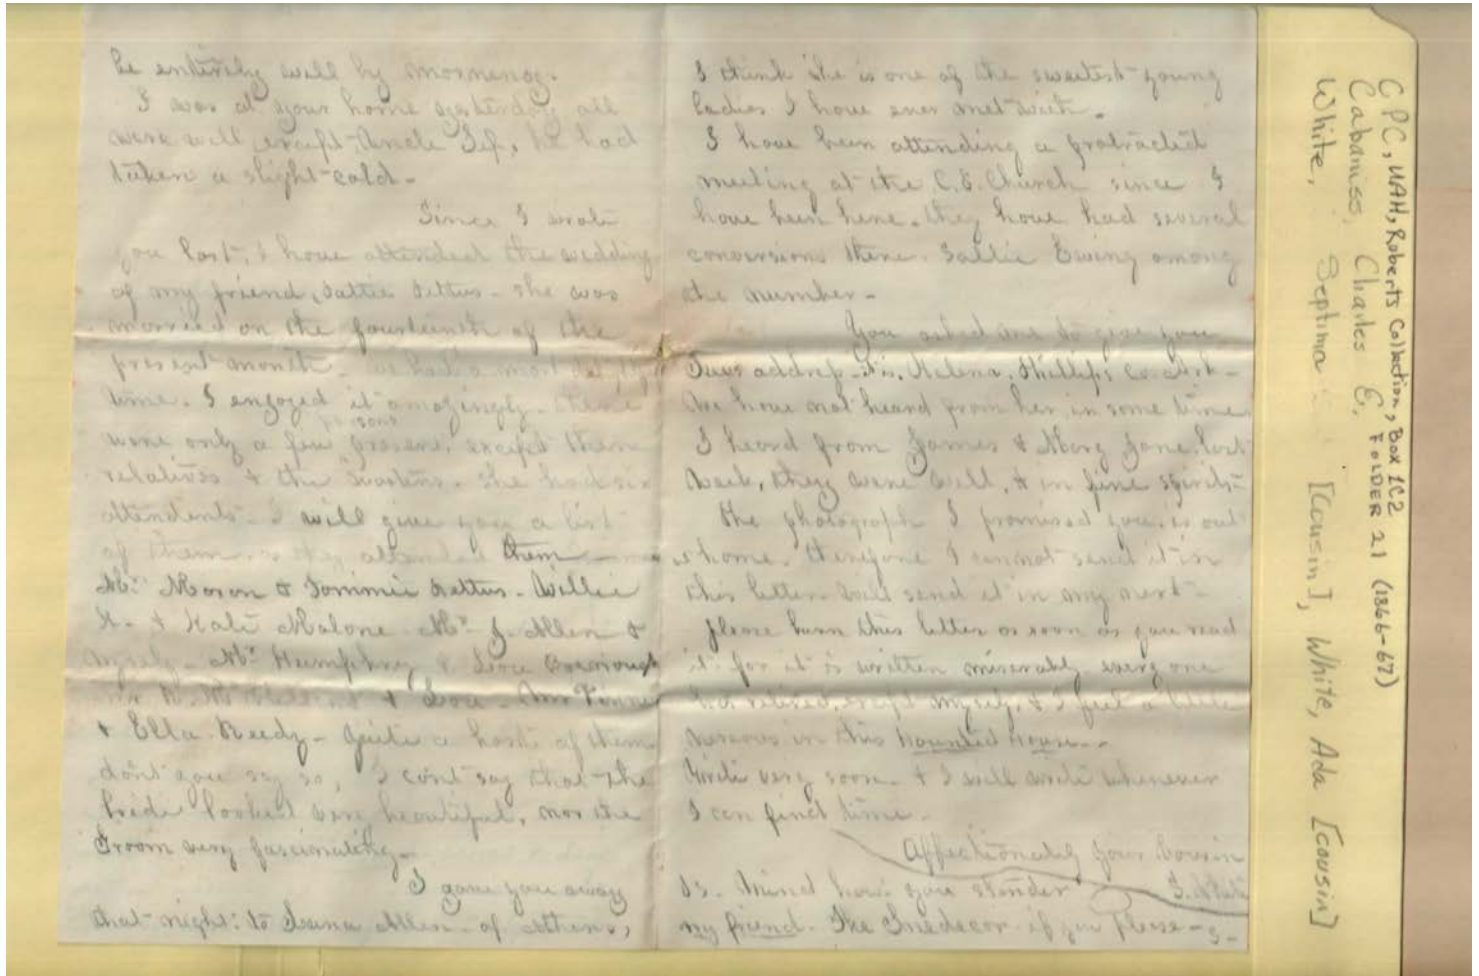 be entirely well by morning.
I was at your home yesterday all
were well except Uncle Sep, he had
taken a slight cold-
Since I wrote
you last, I have attended the wedding
of my friend, - she was
married on the fourteenth of the
present month - we had a most
time. I enjoyed it amazingly - there
were only a few persons present, except there
relatives & the . she had six
attendents - I will give you a list
of them, as they attended them -
Mr. Moron & Tommie Pettus - Willie
H. & Kate Malone Mr. J. Allen &
myself - Mr. Humphry &
& Lou -
& Ella Reedy - Quite a host of them
dont you say so, I cont say that the
bride looked very beautiful, nor the
Groom very fascinating -
I gave you away
that night: to Allen - of Athens,
I think she is one of the sweetest young
ladies I have ever met with.
I have been attending a protracted
meeting at the C. P. Church since I
have been here. they have had several
conversions there. Sallie Ewing among
the number -
You asked me to give you
address - it is, Helena, Phillips Co. Ark -
We have not heard from her in some time
I heard from James & Mary Jane, last
week, they were well, & in fine spirits -
the photograph I promised you is out
home. therefore I cannot send it in
this letter - will send it in my next -
please burn this letter as soon as you read
it - for it is written miserably every one
has retired, except myself, & I feel a little
nervous in this Haunted House -
Write very soon - & I will write whenever
I can find time -
Affectionately your Cousin
S. White
Ps. Mind how you slander
my friend. Ike Snedecor if you Please - S -
GPC, UAH, Roberts Collection, Box 1C2
FOLDER 21 (1866-67)
Cabaniss, Charles E.
White, Septima [cousin], White, Ada [cousin]